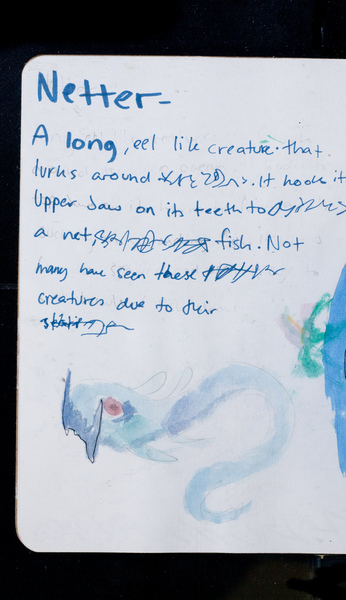 Netter-
A long, eel lik creature that
lurks around . It hooks it
Upper Jaw on its teeth to
a net, fish. Not
many have seen these
creatures due to their